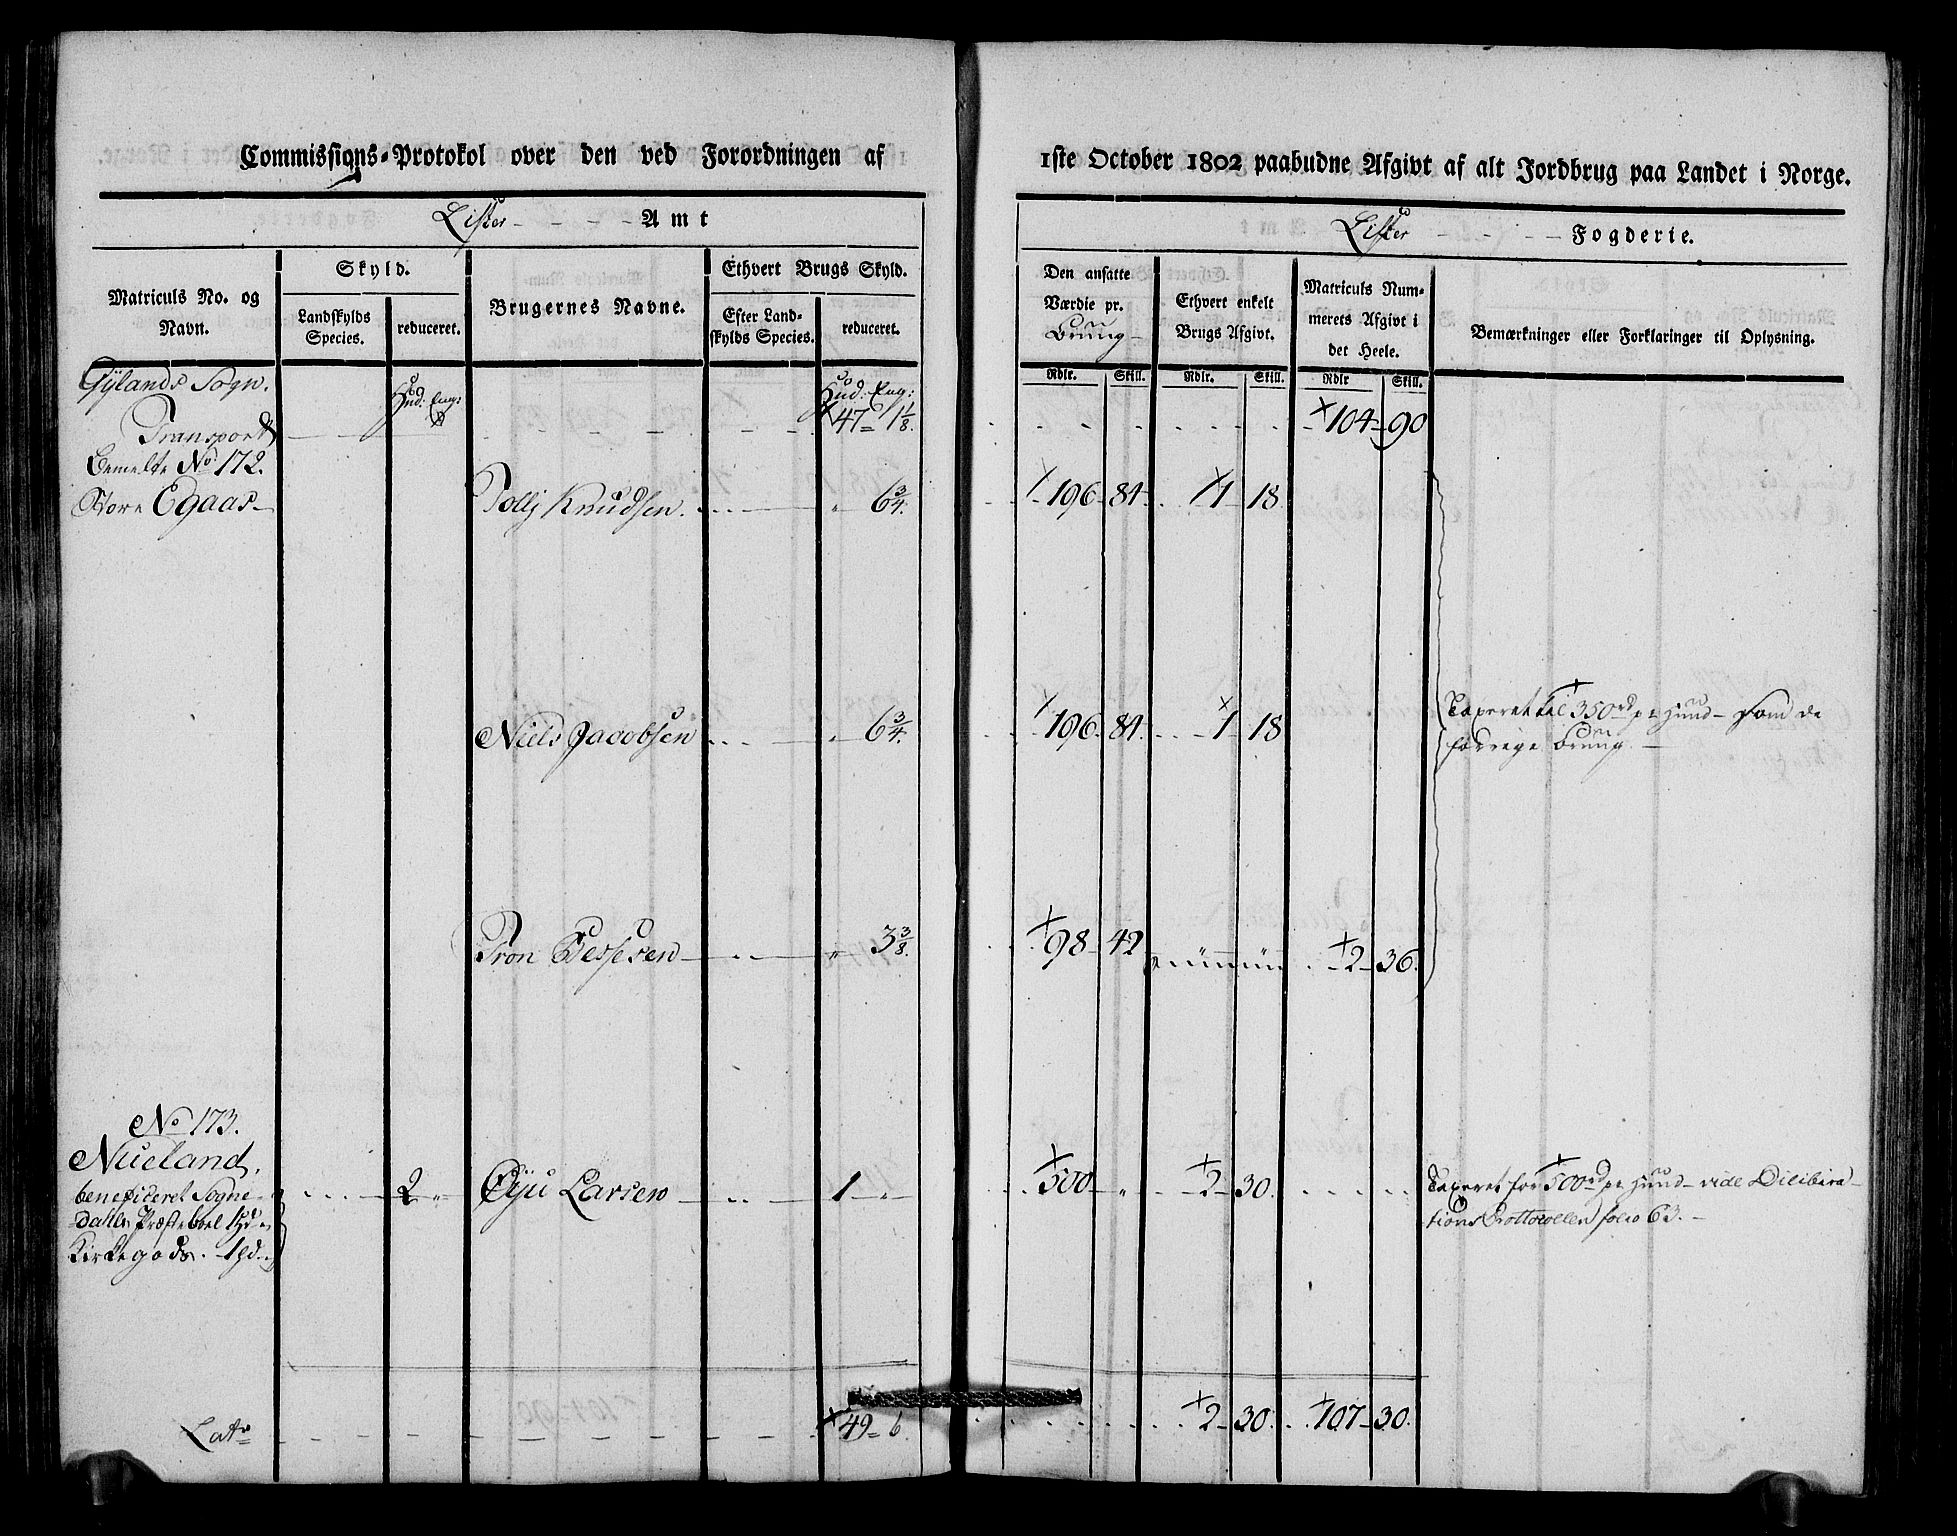 Commissions-Protokol over den ved Forordningen af
1ste October 1802 paabudne Afgivt af alt Jordbrug paa Landet i Norge.
Lister - - - - Amt
Lister - - - - Fogderie.
Matriculs No. og Navn.
Skyld.
Landskylds Species.
reduceret.
Brugernes Navne.
Ethvert Brugs Skyld.
Efter Land-
skylds Species.
reduceret.
Den ansatte
Værdie pr.
Bruug -
Ethvert enkelt
Brugs Afgivt.
Matriculs Num-
merets Afgivt i
det Heele.
Bemærkninger eller Forklaringer til Oplysning.
Rdlr. Skill. Rdlr. Skill. Rdlr Skill.
Gylands Sogn. Hud: Eng: Hud: Eng:
Transport 47 - 1 1/8. 104 - 90
bemelte No 172.
Store Egaas - Tollj Knudsen. 6 3/4. 196 - 84 1 - 18
Niels Jacobsen 6 3/4. 196. 84. 1 18 Taxeret til 350 rd pr Huud - som de
forrige Bruug. -
Tron Tessesen 3 3/8. 98 - 42 2 - 36.
No 173.
Nueland,
beneficeret Sogne- 2 " Larsen 1 " 500 " 2 - 30. Taxeret for 500 rd pr Huud - vide Delibera-
dahls Præsteboel 1 Hd tions Protocollen folio 63. -
Kirkegods. 1 Hd
Lats 49 - 6. 2 - 30. 107 - 30.